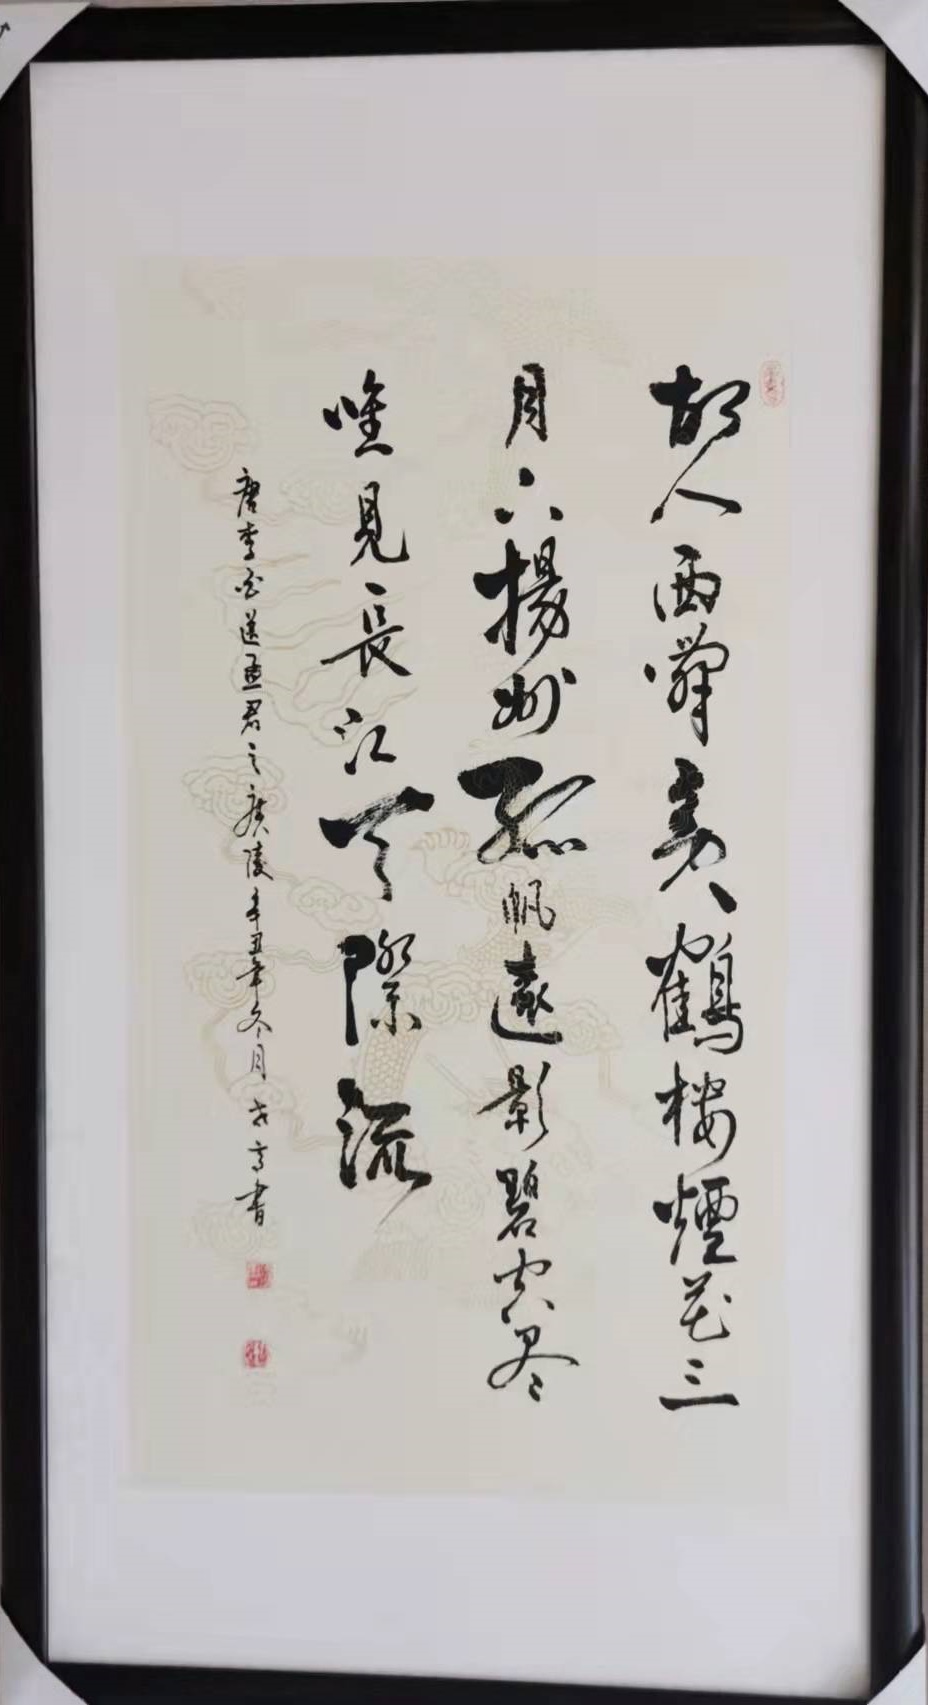 故人西辞黄鹤楼煙花三
月下揚州孤帆遠影碧空尽
唯見長江天際流
唐李白送孟君之廣陵辛丑年冬月 书